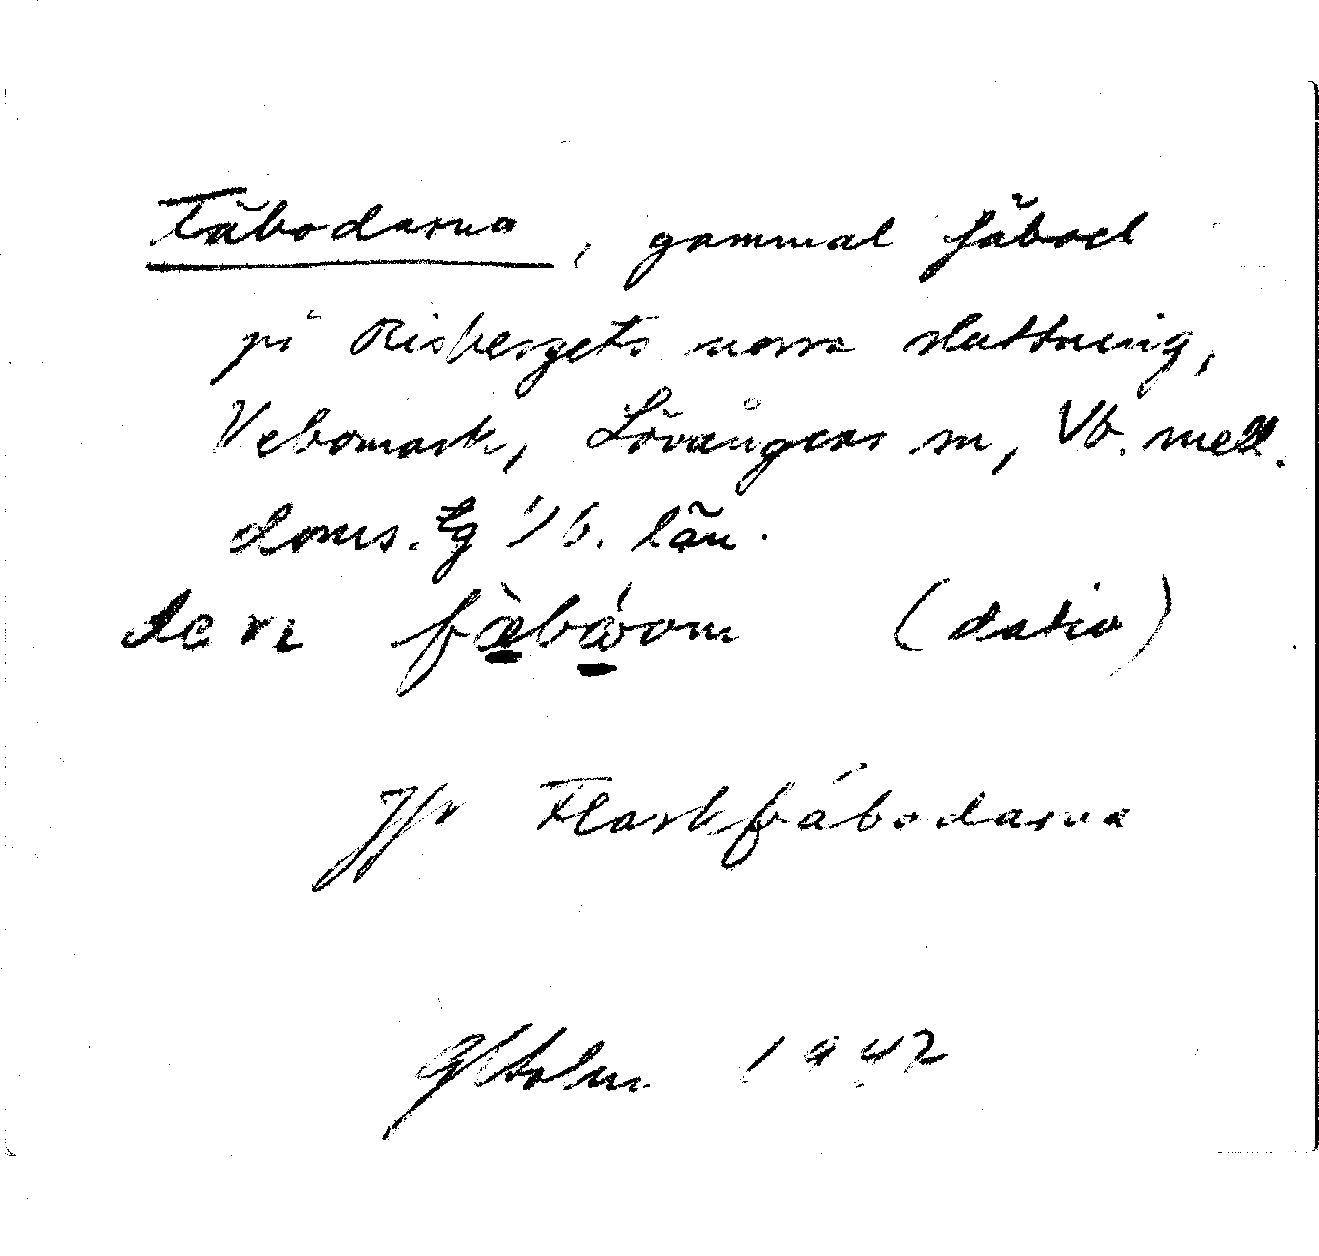 Fäbodarna, gammal fäbod
på Risbergets norra sluttning,
Vebomark, Lövångers sn, Vb. mell.
doms. tg Vb. län.
fæ̀bóom (dativ)
Jfr Flarkfäbodarna
GHolm 1947